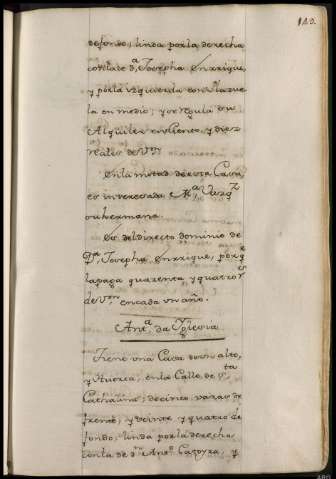 140.
de fondo, linda por la derecha
con la de D.ª Josepha Enrriquez,
y por la izquierda con Plazue
la en medio; y se regula su
Alquiler en Ciento, y diez
reales de V.on
En la mitad de esta Casa
es interesada M.ª Vazq.z
su hermana.
Es del directo dominio de
D.ª Josepha Enrriquez, por q.e
la paga quarenta, y quatro r.s
de V.on en cada un año.
Ant.ª da Yglesia
Tiene una Casa de un alto,
y Huerta, en la Calle de S.ta
Cathalina, de cinco varas de
frente, y veinte, y quatro de
fondo, linda por la derecha
con la de D.n Ant.o Cadpya, y